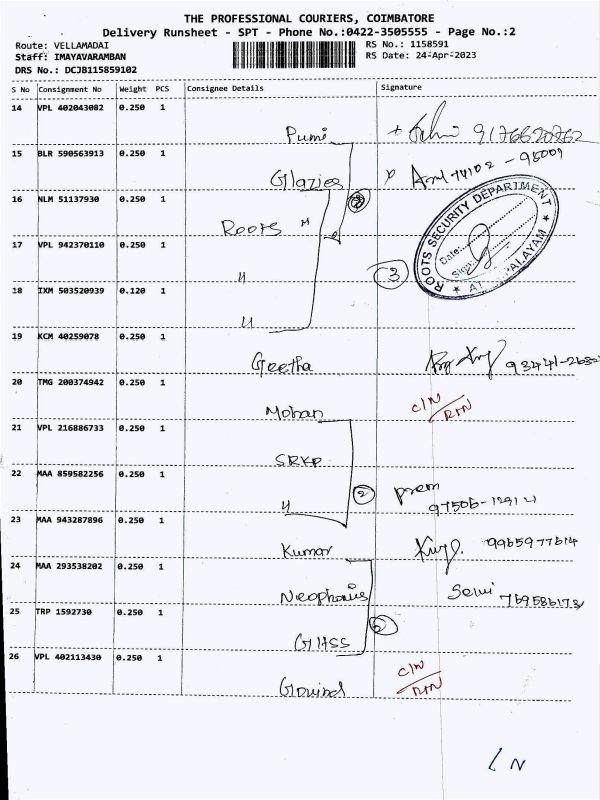 THE PROFESSIONAL COURIERS, COIMBATORE
Delivery Runsheet - SPT - Phone No.:0422-3505555 - Page No.:2
Route: VELLAMADAI RS No.: 1158591
Staff: IMAYAVARAMBAN RS Date: 24-Apr-2023
DRS No.: DCJB115859102
S No Consignment No Weight PCS Consignee Details Signature
14 VPL 402043082 0.250 1
15 BLR 590563913 0.250 1
Glazies
16 NLM 51137930 0.250 1
Roots "
ROOTS SECURITY DEPARTMENT
Date:
Sign:
17 VPL 942370110 0.250 1
"
3
18 IXM 503520939 0.120 1
"
19 KCM 40259078 0.250 1
Geetha
20 TMG 200374942 0.250 1
Mohan C/N
RTN
21 VPL 216886733 0.250 1
SRKP
22 MAA 859582256 0.250 1
" 2 prem
23 MAA 943287896 0.250 1
Kumar 9965977614
24 MAA 293538202 0.250 1
Selvi
25 TRP 1592730 0.250 1
Glass
26 VPL 402113430 0.250 1
Govind C/N
RTN